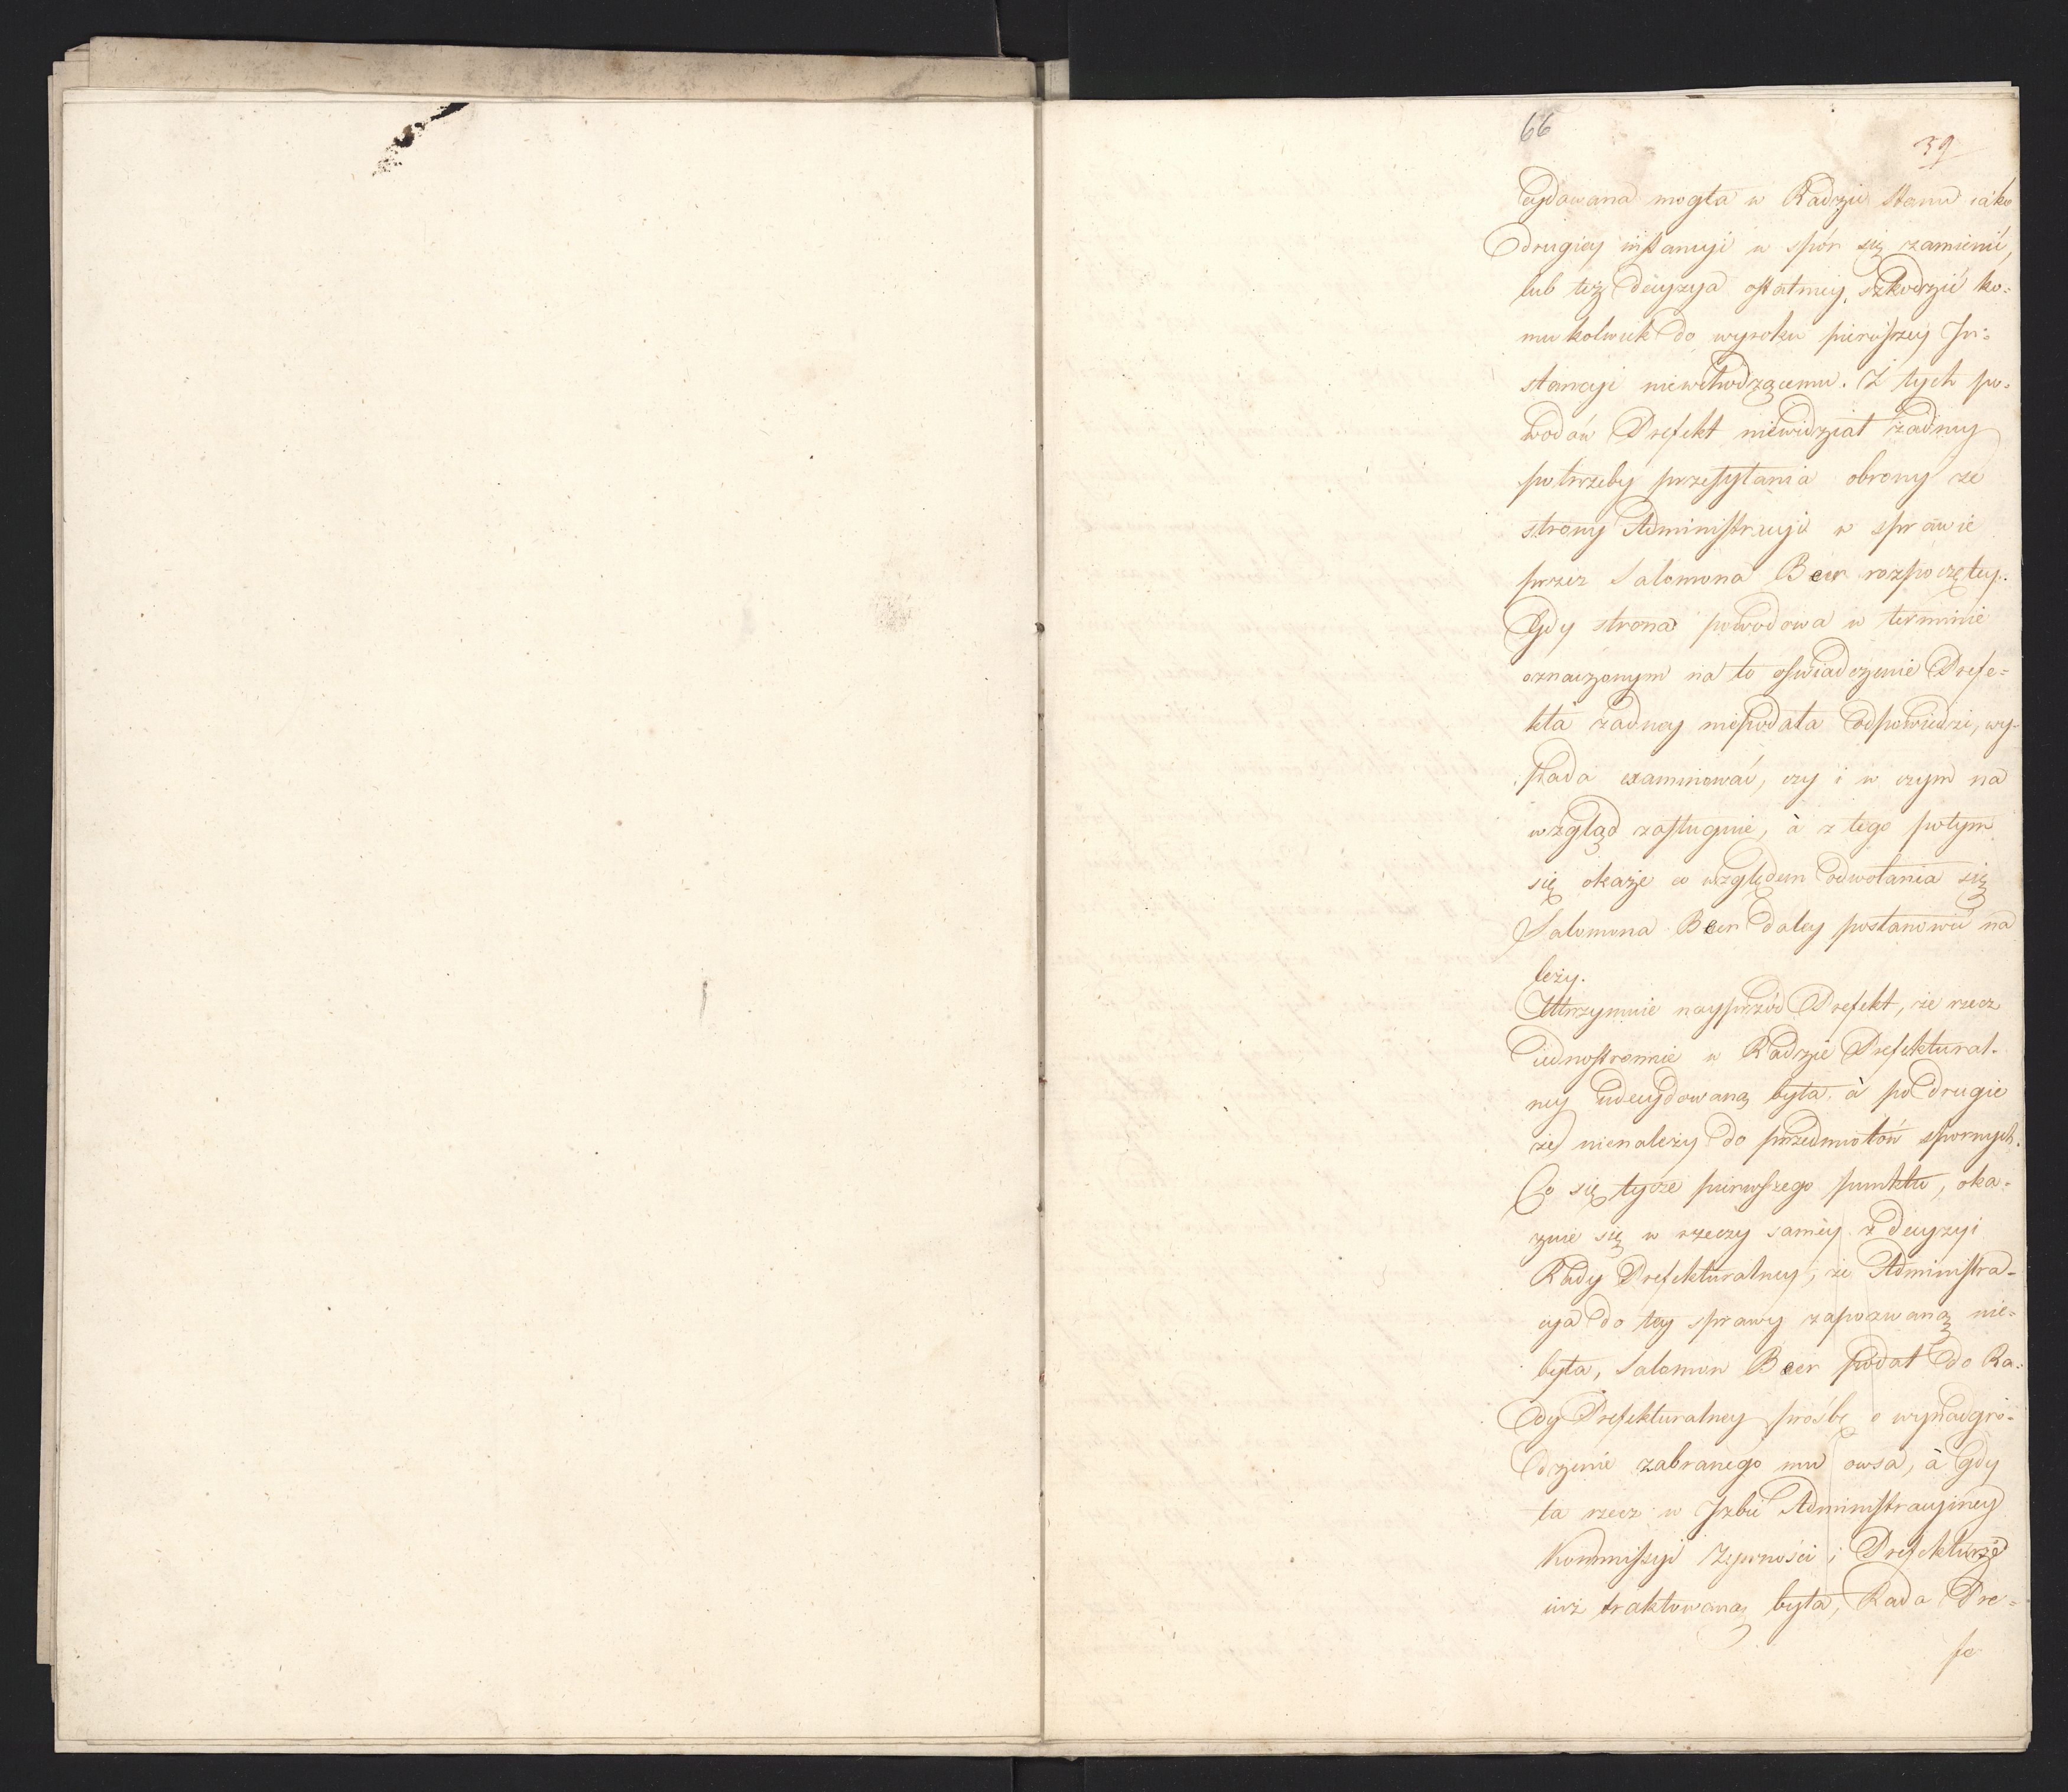 66
39
cydowana mogła w Radzie Stanu iako
drugiey instancyi w spór się zamienić,
lub też decyzya ostatniey, szkodzić ko-
mukolwiek do wyroku pierwszey In-
stancyi niewchodzącemu. Z tych po-
wodów Prefekt niewidział żadney
potrzeby przesyłania obrony ze
strony Administracyi w sprawie
przez Salomona Beer rozpoczętey.
Gdy strona powodowa w terminie
oznaczonym na to oświadczenie Prefe-
kta żadney niepodała odpowiedzi, wy-
pada examinować, czy i w czym na
wzgląd zasługuie, à z tego potym
się okaże co względem odwołania się
Salomona Beer daley postanowić na
leży.
Utrzymuie nayprzód Prefekt, że rzecz
iednostronnie w Radzie Prefektural-
ney udecydowaną była, à po drugie
że nienależy do przedmiotów spornych.
Co się tycze pierwszego punktu, oka-
zuie się w rzeczy saméy z decyzyi
Rady Prefekturalney, że Administra-
cya do tey sprawy zapozwaną nie-
była, Salomon Beer podał do Ra-
dy Prefekturalney prośbę o wynadgro-
dzenie zabranego mu owsa, à gdy
ta rzecz w Izbie Administracyiney
Kommissyi Żywności i Prefekturze
iuż traktowaną była, Rada Pre-
fe